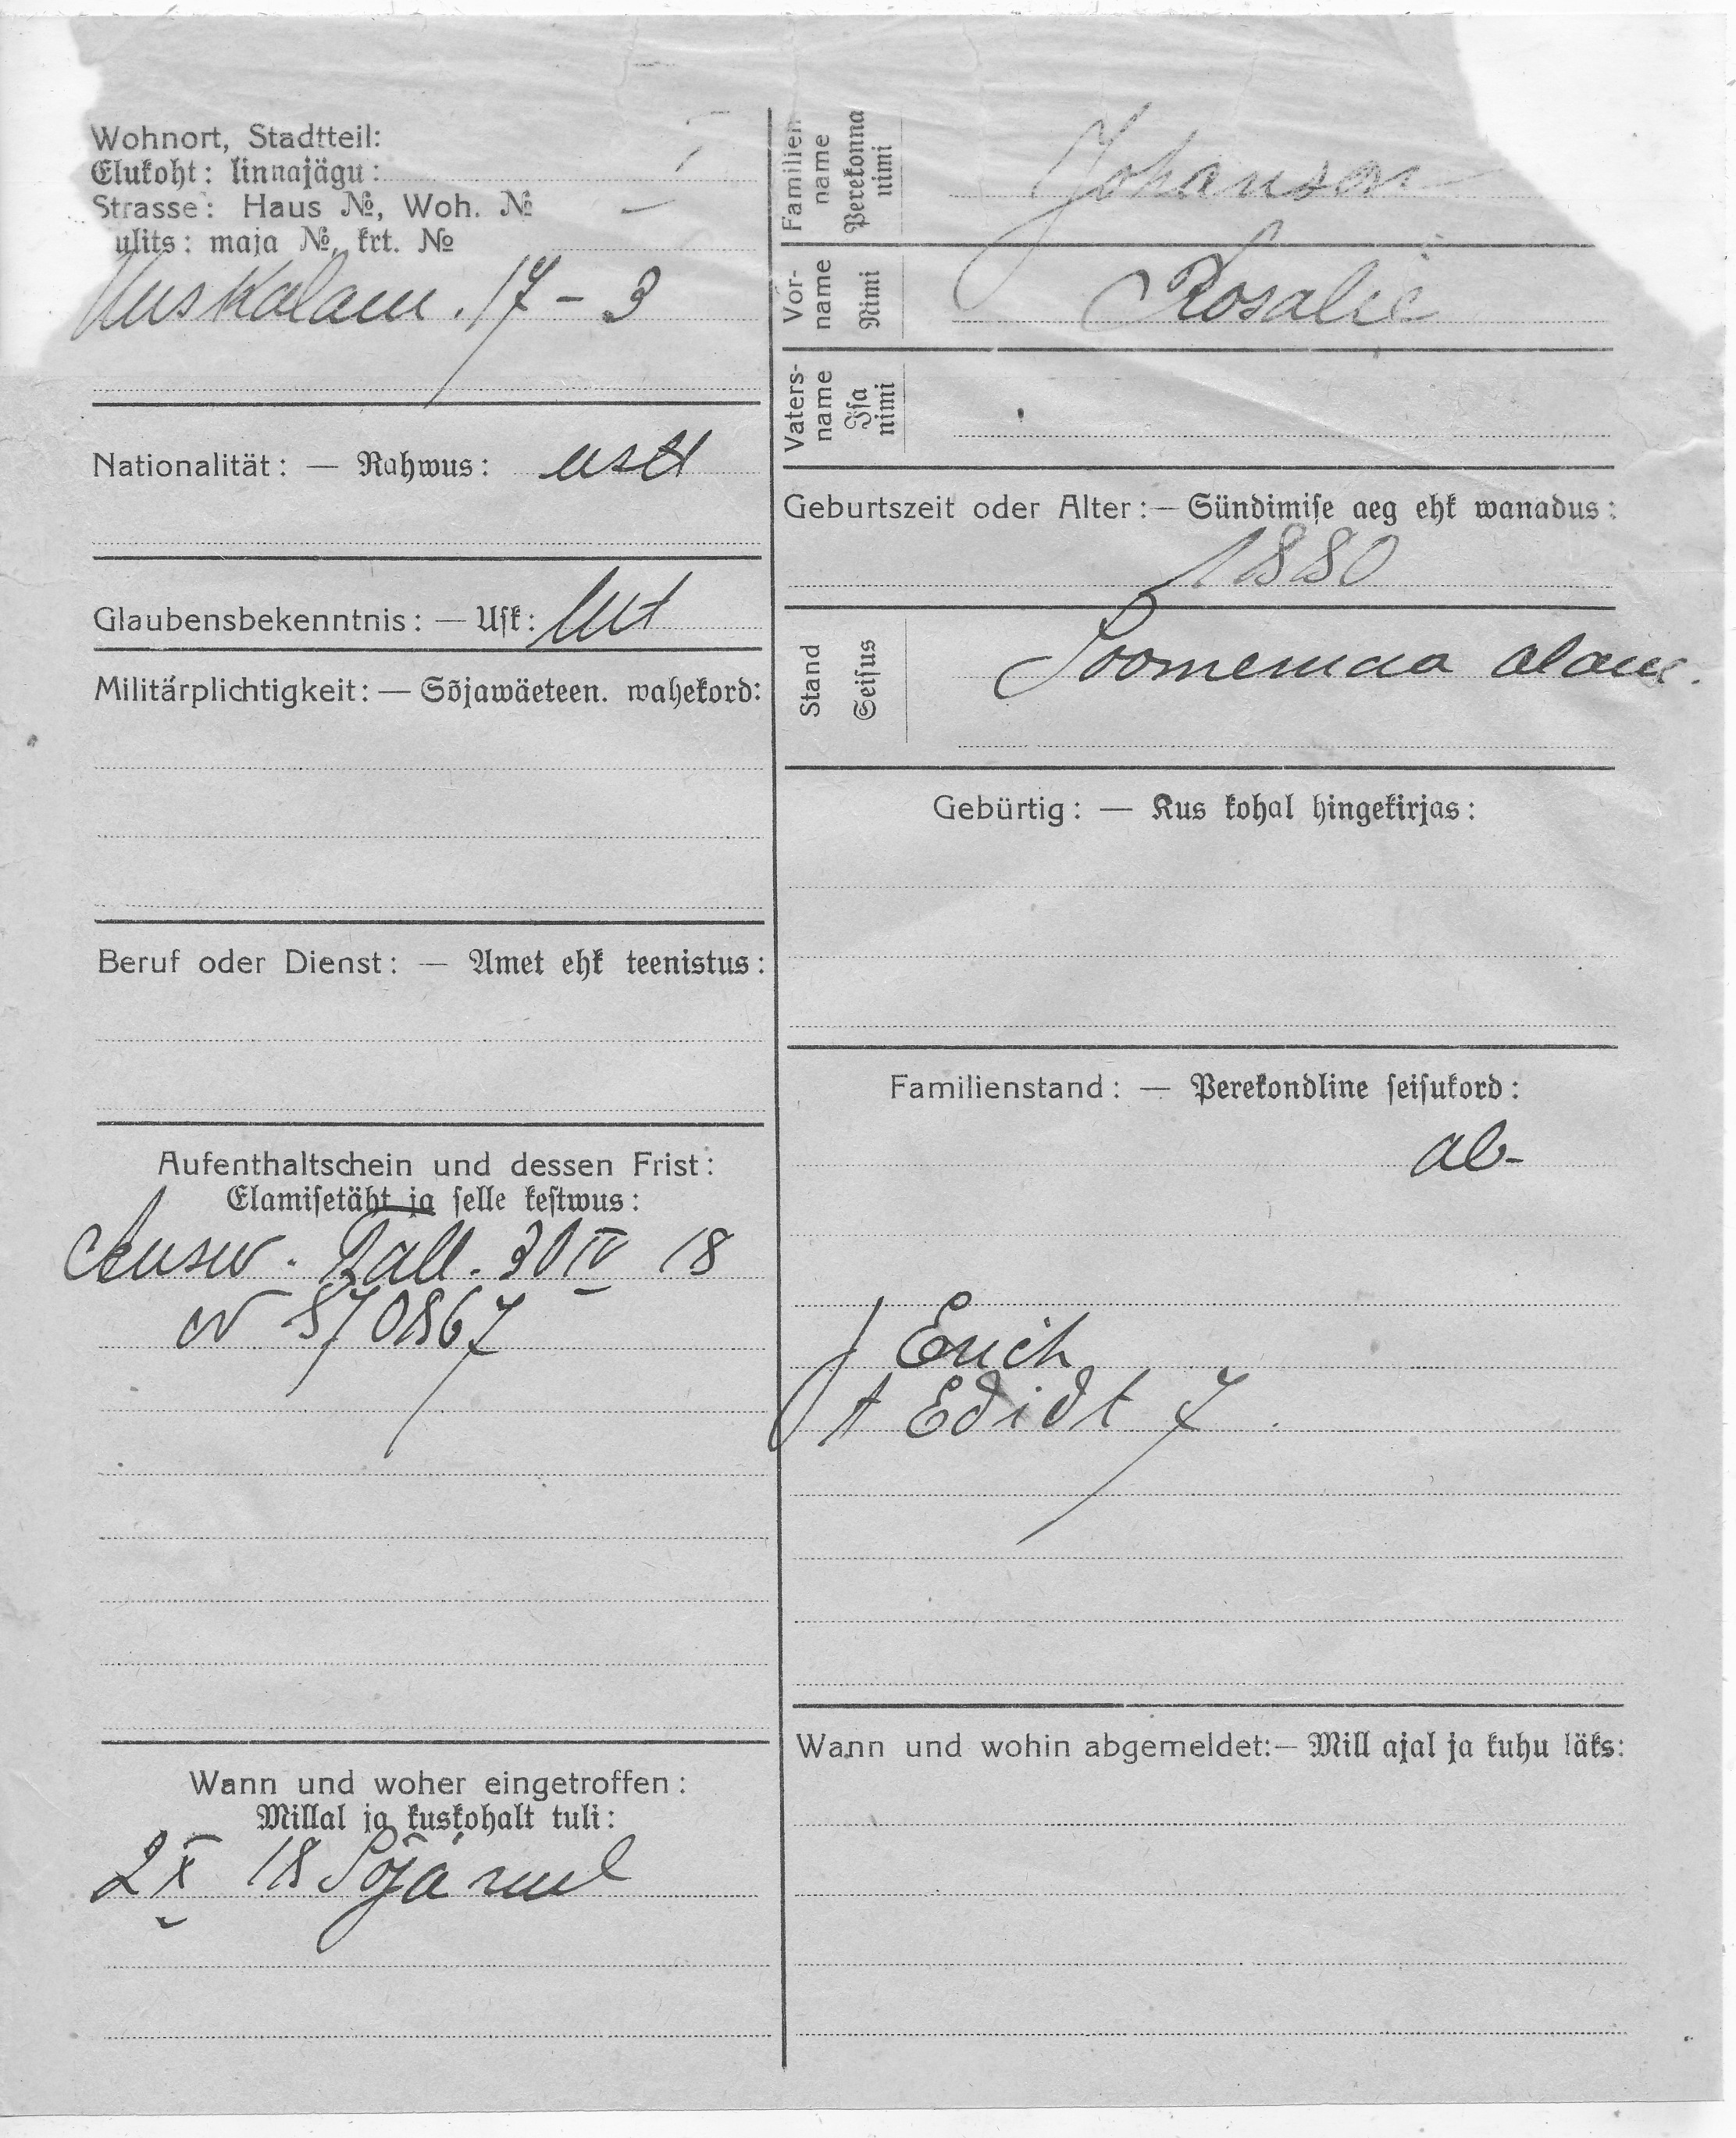 Wohnort, Stadtteil:
Elukoht: linnajägu:
Strasse: Haus №, Woh. №
ulits: maja №, krt. №
Uuskalam. 17 - 3
Nationalität: — Rahwus: eestl
Glaubensbekenntnis: — Usk: lut
Militärplichtigkeit: — Sõjawäeteen. wahekord:
Beruf oder Dienst: — Amet ehk teenistus:
Aufenthaltschein und dessen Frist:
Elamisetäht ja selle kestwus:
Ausw. Tall. 30 IV 18
N 870867
Wann und woher eingetroffen:
Millal ja kuskohalt tuli:
2 X 18 Sõja
Familien name Perekonna nimi Johanson
Vor- name Nimi Rosalie
Vaters- name Isa nimi
Geburtszeit oder Alter: — Sündimise aeg ehk wanadus:
1880
Stand Seisus Soomemaa alam.
Gebürtig: — Kus kohal hingekirjas:
Familienstand: — Perekondline seisukord:
ab-
Erich
t Edidt 7
Wann und wohin abgemeldet: — Mill ajal ja kuhu läks: